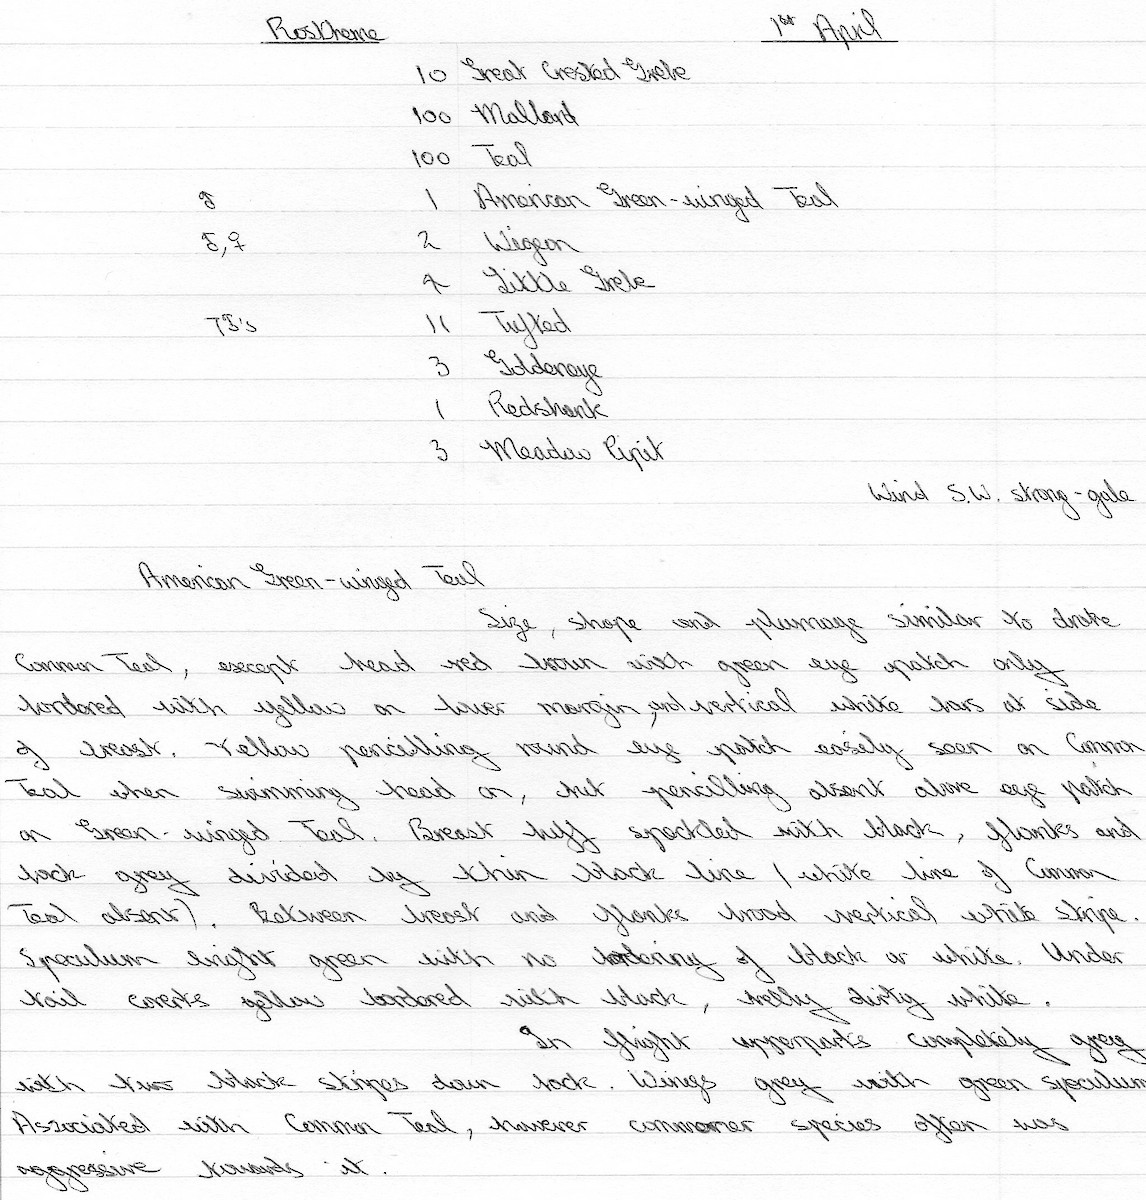 Rostherne 1st April
10 Great Crested Grebe
100 Mallard
100 Teal
♂ 1 American Green-winged Teal
♂,♀ 2 Wigeon
4 Little Grebe
7♂'s 11 Tufted
3 Goldeneye
1 Redshank
3 Meadow Pipit
Wind S.W. strong-gale
American Green-winged Teal
Size, shape and plumage similar to drake
Common Teal, except head red brown with green eye patch only
bordered with yellow on lower margin, and vertical white bars at side
of breast. Yellow pencilling round eye patch easily seen on Common
Teal when swimming head on, but pencilling absent above eye patch
on Green-winged Teal. Breast buff speckled with black, flanks and
back grey divided by thin black line (white line of Common
Teal absent). Between breast and flanks broad vertical white stripe.
Speculum bright green with no bordering of black or white. Under
tail coverts yellow bordered with black, belly dirty white.
In flight upperparts completely grey
with two black stripes down back. Wings grey with green speculum
Associated with Common Teal, however commoner species often was
aggressive towards it.